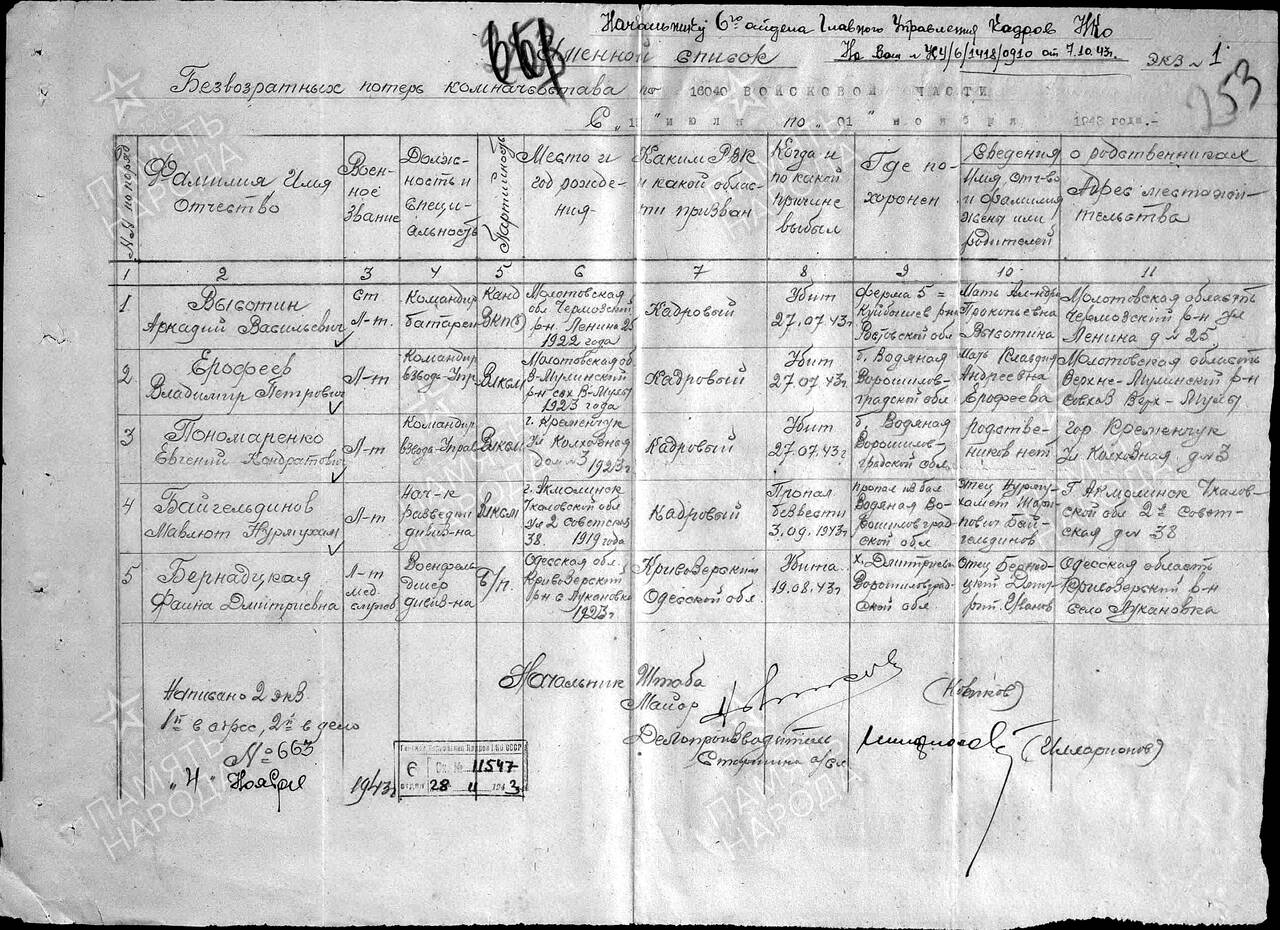 Начальнику 6го отдела Главного Управления Кадров НКО
Именной список
На Ваш № УК4/6/1418/0910 от 7.10.43г.
экз № 1
353
Безвозратных потерь комначсостава по 16040 войсковой части
253
С " июля по "01" ноября 1943 года.-
№№ по поряд
Фамилия Имя
Отчество
Воен-
ное
звание
Долж-
ность и
специ-
альность
Партийность
Место и
год рожде-
ния-
Каким РВК
и какой облас-
ти призван
Когда и
по какой
причине
выбыл
Где по-
хоронен
Сведения о родственниках
Имя отч-во
и фамилия
жены или
родителей
Адрес местажи-
тельства
1 2 3 4 5 6 7 8 9 10 11
1
Высотин
Аркадий Васильевич
Ст
Л-т.
Командир
батареи
Канд
ВКП(б)
Молотовская
об Чермозский
р-н Ленина 25
1922 года
Кадровый
Убит
27.07.43г
Ферма 5 =
Куйбышев р-на
Ростовской обл
Мать Ал-ндра
Прокопьевна
Высотина
Молотовская область
Чермозский р-н ул
Ленина д № 25
2
Ерофеев
Владимир Петрович
Л-т
Командир
взвода-Упр
Влксм
Молотовская об.
В-Мулинский
р-н свх В-Мулы
1923 года
Кадровый
Убит
27.07.43г
б. Водяная
Ворошилов-
градской обл
Мать Клавдия
Андреевна
Ерофеева
Молотовская область
Верхне-Мулинский р-н
Совхоз Верх-Мулы
3
Пономаренко
Евгений Кондратович
Л-т
Командир
взвода-Управ
Влксм
г. Кременчуг
ул Колхозная
дом № 3 1923г
Кадровый
Убит
27.07.43г
б. Водяной
Ворошилов-
градской обл.
Родстве-
ников нет
гор Кременчук
ул Колхозная д № 3
4
Байгельдинов
Мавлют Нурмухам
Л-т
Нач-к
разведки
дивиз-на
Влксм
г. Акмолинск
Чкаловской обл
ул 2 Советская
38. 1919 года
Кадровый
Пропал
безвести
3.09.1943г
пропал из бал
Водяная Во-
рошиловград-
ской обл
Отец Нурму-
хамет Шари-
пович Бай-
гельдинов
Г Акмолинск Чкалов-
ской обл 2я Совет-
ская д № 38
5
Бернадцкая
Фаина Дмитриевна
Л-т
мед.
служб
Военфель-
дшер
дивиз-на
Б/п.
Одесская обл.
КривоЗерский
р-н с Лукановка
1923г
КривоЗерским
Одесской обл.
Убита
19.08.43г
х. Дмитриевка
Ворошиловград-
ской обл
Отец Бернад-
цкий Дмит-
рий Иванов
Одесская область
КривоЗерский р-н
село Лукановка
Написано 2 экз
1й в адрес, 2й в дело
№ 663
"4" Ноября 1943г
Начальник Штаба
Майор
(Новиков)
Делопроизводитель
Старшина а/сл
(Илларионов)
6
отдел
Вх. № 11547
28 11 1943
ПАМЯТЬ
НАРОДА
ПАМЯТЬ
НАРОДА
ПАМЯТЬ
НАРОДА
ПАМЯТЬ
НАРОДА
ПАМЯТЬ
НАРОДА